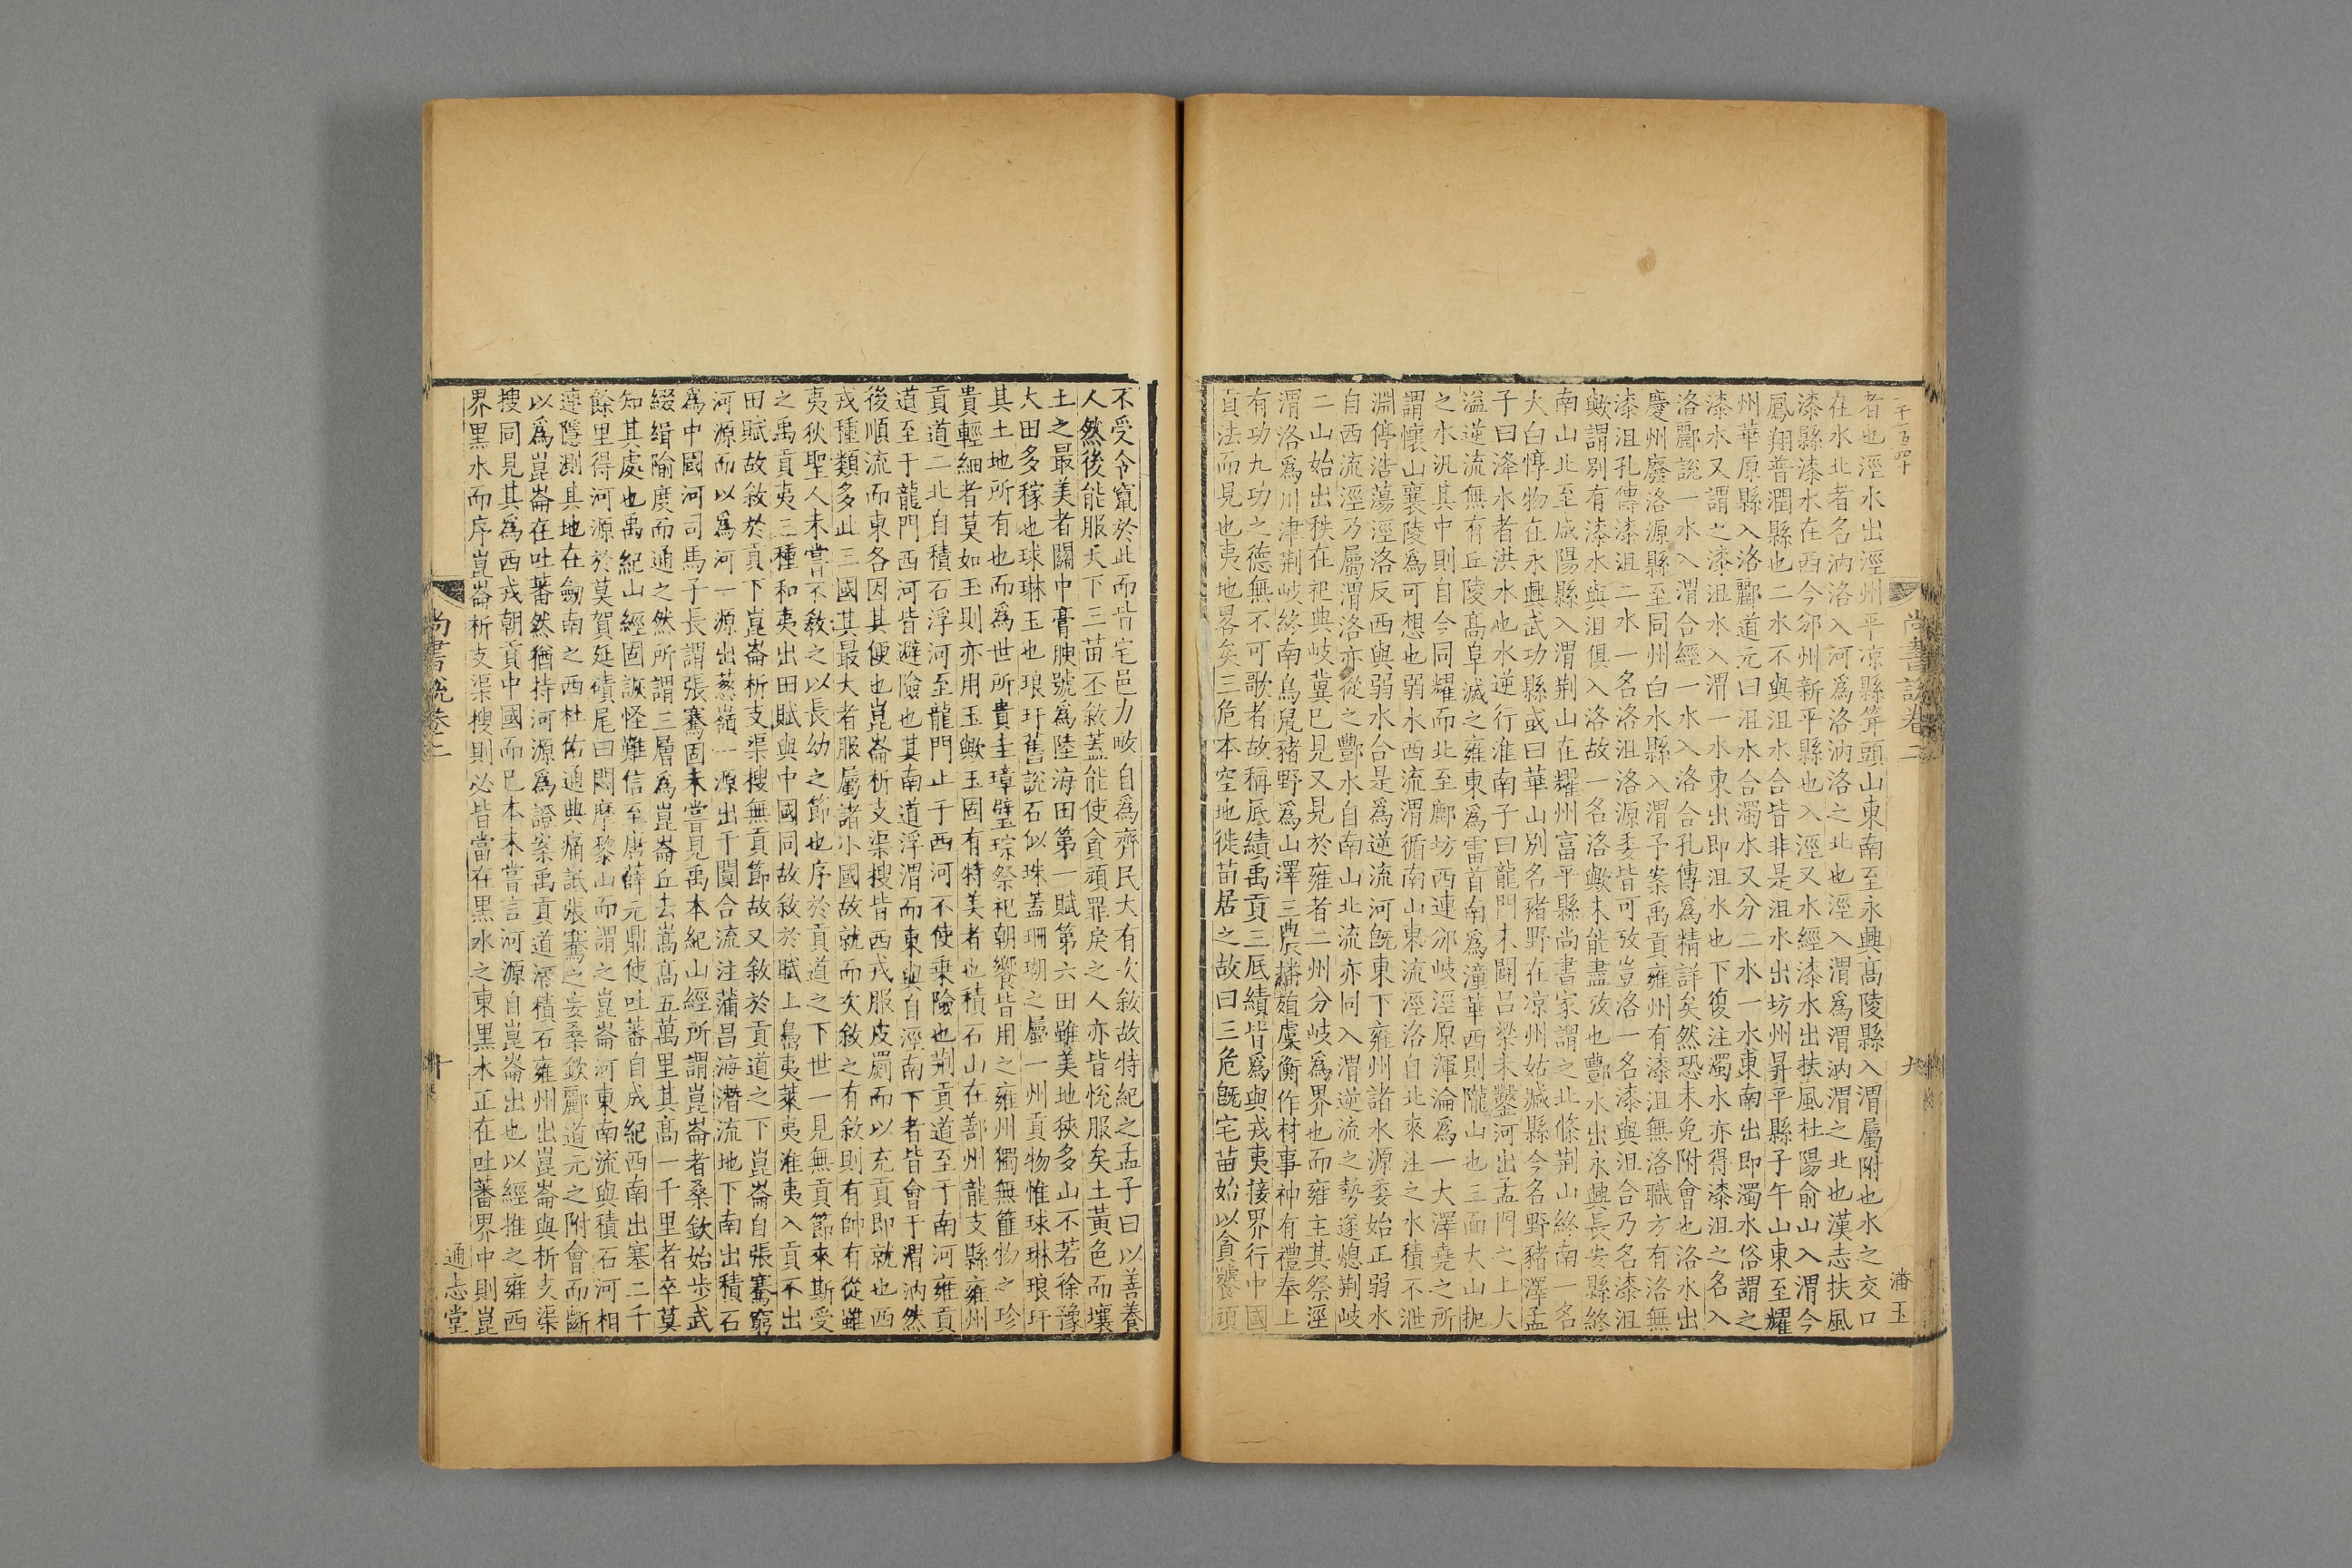 尚書說卷二
九
者也涇水出涇州平凉縣笄頭山東南至永興髙陵縣入渭屬附也水之交口
在水北者名汭洛入河爲洛汭洛之北也涇入渭爲渭汭渭之北也漢志扶風
漆縣漆水在西今邠州新平縣也入涇又水經漆水出扶風杜陽俞山入渭今
鳳翔普潤縣也二水不與沮水合皆非是沮水出坊州昇平縣子午山東至耀
州華原縣入洛酈道元曰沮水合濁水又分二水一水東南出即濁水俗謂之
漆水又謂之漆沮水入渭一水東出即沮水也下復注濁水亦得漆沮之名入
洛酈說一水入渭合經一水入洛合孔傳爲精詳矣然恐未免附會也洛水出
慶州廢洛源縣至同州白水縣入渭予案禹貢雍州有漆沮無洛職方有洛無
漆沮孔傳漆沮二水一名洛沮洛源委皆可攷豈洛一名漆與沮合乃名漆沮
歟謂別有漆水與沮俱入洛故一名洛歟未能盡攷也酆水出永興長安縣終
南山北至咸陽縣入渭荆山在耀州富平縣尚書家謂之北條荆山終南一名
大白惇物在永興武功縣或曰華山別名豬野在凉州姑臧縣今名野豬澤孟
子曰洚水者洪水也水逆行淮南子曰龍門未闢吕梁未鑿河出孟門之上大
溢逆流無有丘陵髙阜滅之雍東爲雷首南爲潼華西則隴山也三面大山扼
之水汎其中則自今同耀而北至鄜坊西連邠岐涇原渾淪爲一大澤堯之所
謂懷山襄陵爲可想也弱水西流渭循南山東流涇洛自北來注之水積不泄
淵停浩蕩涇洛反西與弱水合是爲逆流河旣東下雍州諸水源委始正弱水
自西流涇乃屬渭洛亦從之酆水自南山北流亦同入渭逆流之勢遂熄荆岐
二山始出秩在祀典岐冀已見又見於雍者二州分岐爲界也而雍主其祭涇
渭洛爲川津荆岐終南鳥鼠豬野爲山澤三農播殖虞衡作材事神有禮奉上
有功九功之德無不可歌者故稱厎績禹貢三厎績皆爲與戎夷接界行中國
貢法而見也夷地畧矣三危本空地徙苗居之故曰三危旣宅苗始以貪饕頑
不受令竄於此而皆宅邑力畋自爲齊民大有次敘故特紀之孟子曰以善養
人然後能服天下三苗丕敘蓋能使貪頑罪戾之人亦皆悅服矣土黃色而壤
土之最美者關中膏腴號爲陸海田第一賦第六田雖美地狹多山不若徐豫
大田多稼也球琳玉也琅玕舊說石似珠蓋珊瑚之屬一州貢物惟球琳琅玕
其土地所有也而爲世所貴圭璋璧琮祭祀朝饗皆用之雍州獨無篚物之珍
貴輕細者莫如玉則亦用玉歟玉固有特美者也積石山在鄯州龍支縣雍州
貢道二北自積石浮河至龍門止于西河不使乗險也荆貢道至于南河雍貢
道至于龍門西河皆避險也其南道浮渭而東與自涇南下者皆會于渭汭然
後順流而東各因其便也崑崙析支渠搜皆西戎服皮罽而以充貢即就也西
戎種類多此三國其最大者服屬諸小國故就而次敘之有敘則有帥有從雖
夷狄聖人未嘗不敎之以長幼之節也序於貢道之下世一見無貢節來斯受
之禹貢夷三種和夷出田賦與中國同故敘於賦上島夷萊夷淮夷入貢不出
田賦故敘於貢下崑崙析支渠搜無貢節故又敘於貢道之下崑崙自張騫窮
河源而以爲河一源出葱嶺一源出于闐合流注蒲昌海潛流地下南出積石
爲中國河司馬子長謂張騫固未嘗見禹本紀山經所謂崑崙者桑欽始步武
綴緝隃度而通之然所謂三層爲崑崙丘去嵩髙五萬里其髙一千里者卒莫
知其處也禹紀山經固詼怪難信至唐薛元鼎使吐蕃自成紀西南出塞二千
餘里得河源於莫賀延磧尾曰悶摩黎山而謂之崑崙河東南流與積石河相
連隱測其地在劒南之西杜佑通典痛詆張騫之妄桑欽酈道元之附會而斷
以爲崑崙在吐蕃然猶持河源爲證案禹貢道河積石雍州出崑崙與析支渠
搜同見其爲西戎朝貢中國而巳本未嘗言河源自崑崙出也以經推之雍西
界黒水而序崑崙析支渠搜則必皆當在黒水之東黒水正在吐蕃界中則崑
尚書說卷二
十
通志堂